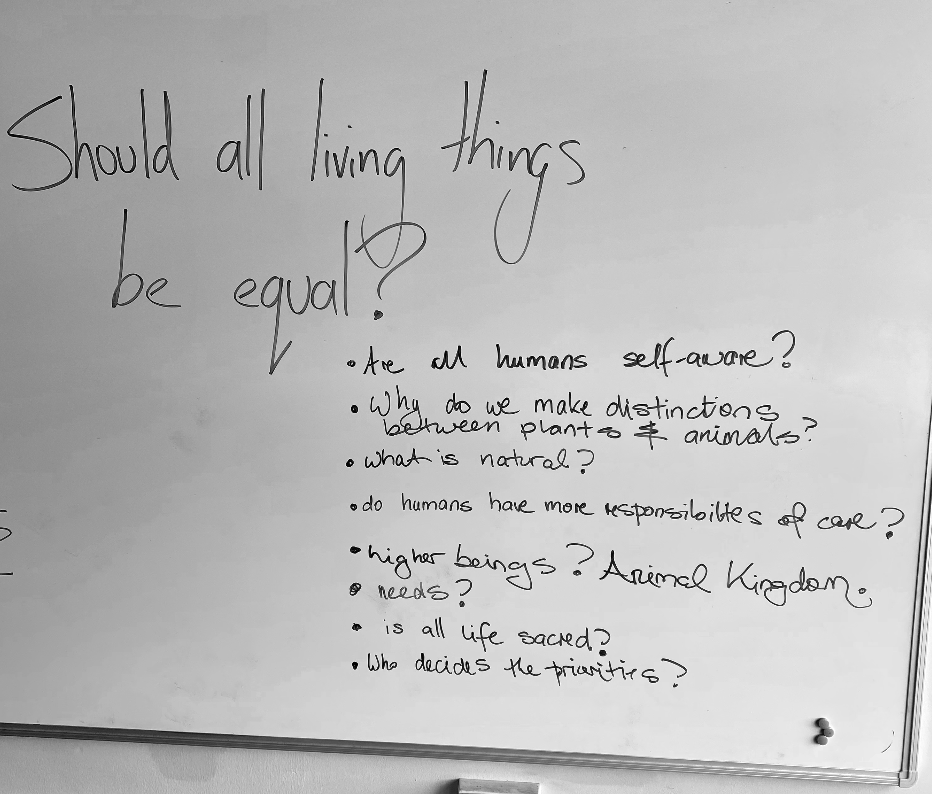 Should all living things
be equal?
• Are all humans self-aware?
• Why do we make distinctions
between plants & animals?
• what is natural?
• do humans have more responsibiltes of care?
• higher beings? Animal Kingdom.
• needs?
• is all life sacred?
• Who decides the priorities?